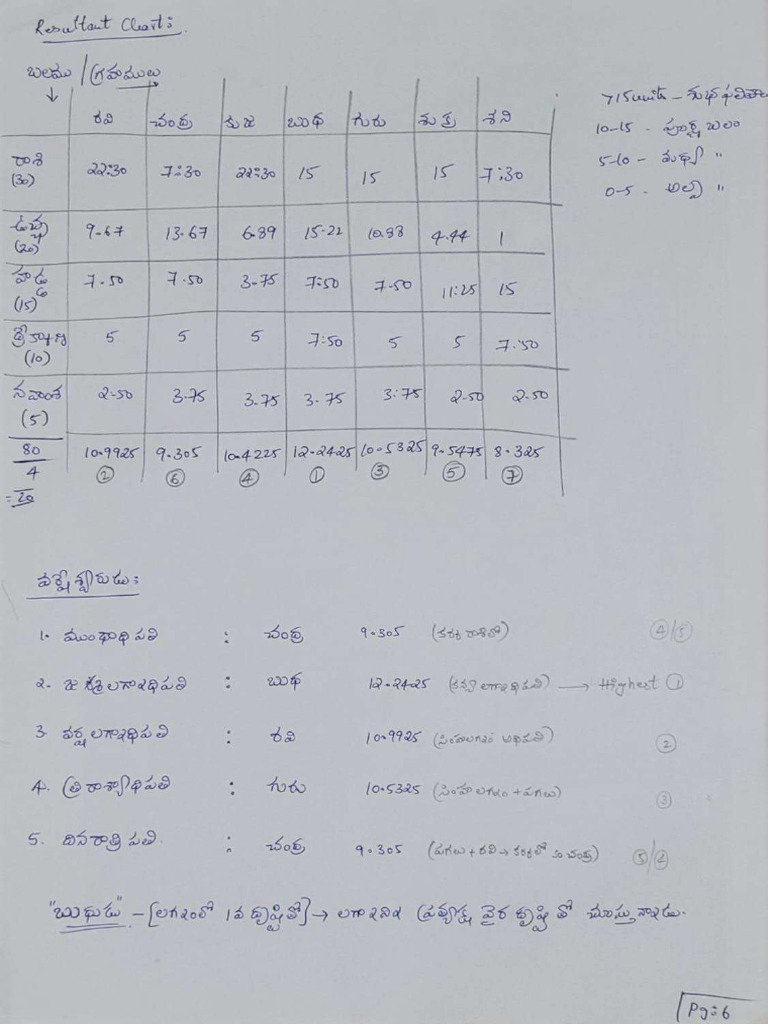 Resultant Chart:
బలము / గ్రహములు
↓
రవి చంద్ర కుజ బుధ గురు శుక్ర శని
7/5 units - శుభఫలితాలు
10-15 - పూర్ణ బలం
5-10 - మధ్య "
0-5 - అల్ప "
రాశి (30) 22:30 7:30 22:30 15 15 15 7:30
ఉచ్ఛ (20) 9.67 13.67 6.89 15.22 10.88 4.44 1
హద్ద (15) 7.50 7.50 3.75 7:50 7.50 11:25 15
ద్రేక్కాణ (10) 5 5 5 7:50 5 5 7:50
నవాంశ (5) 2.50 3.75 3.75 3.75 3:75 2.50 2.50
80/4 10.9925 9.305 10.4225 12.2425 10.5325 9.5475 8.325
= 20 ② ⑥ ④ ① ③ ⑤ ⑦
వర్షేశ్వరుడు:
1. ముంథాధిపతి : చంద్ర 9.305 (కర్క రాశిలో) ④/⑤
2. జన్మలగ్నాధిపతి : బుధ 12.2425 (కన్యాలగ్నాధిపతి) → Highest ①
3. వర్షలగ్నాధిపతి : రవి 10.9925 (సింహలగ్నం అధిపతి) ②
4. త్రిరాశ్యాధిపతి : గురు 10.5325 (సింహ లగ్నం + పగలు) ③
5. దినరాత్రి పతి. : చంద్ర 9.305 (పగలు + రవి → కర్కలో చంద్ర) ⑤/④
"బుధుడు" - [లగ్నంలో 1వ దృష్టితో] → లగ్నానిని ప్రత్యక్ష వైర దృష్టి తో చూస్తున్నాడు.
Pg: 6